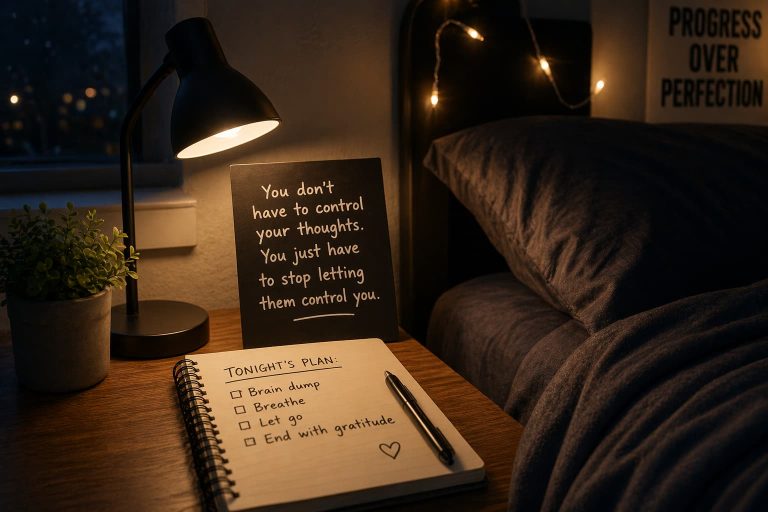 PROGRESS
OVER
PERFECTION
You don't
have to control
your thoughts.
You just have
to stop letting
them control you.
TONIGHT'S PLAN:
Brain dump
Breathe
Let go
End with gratitude